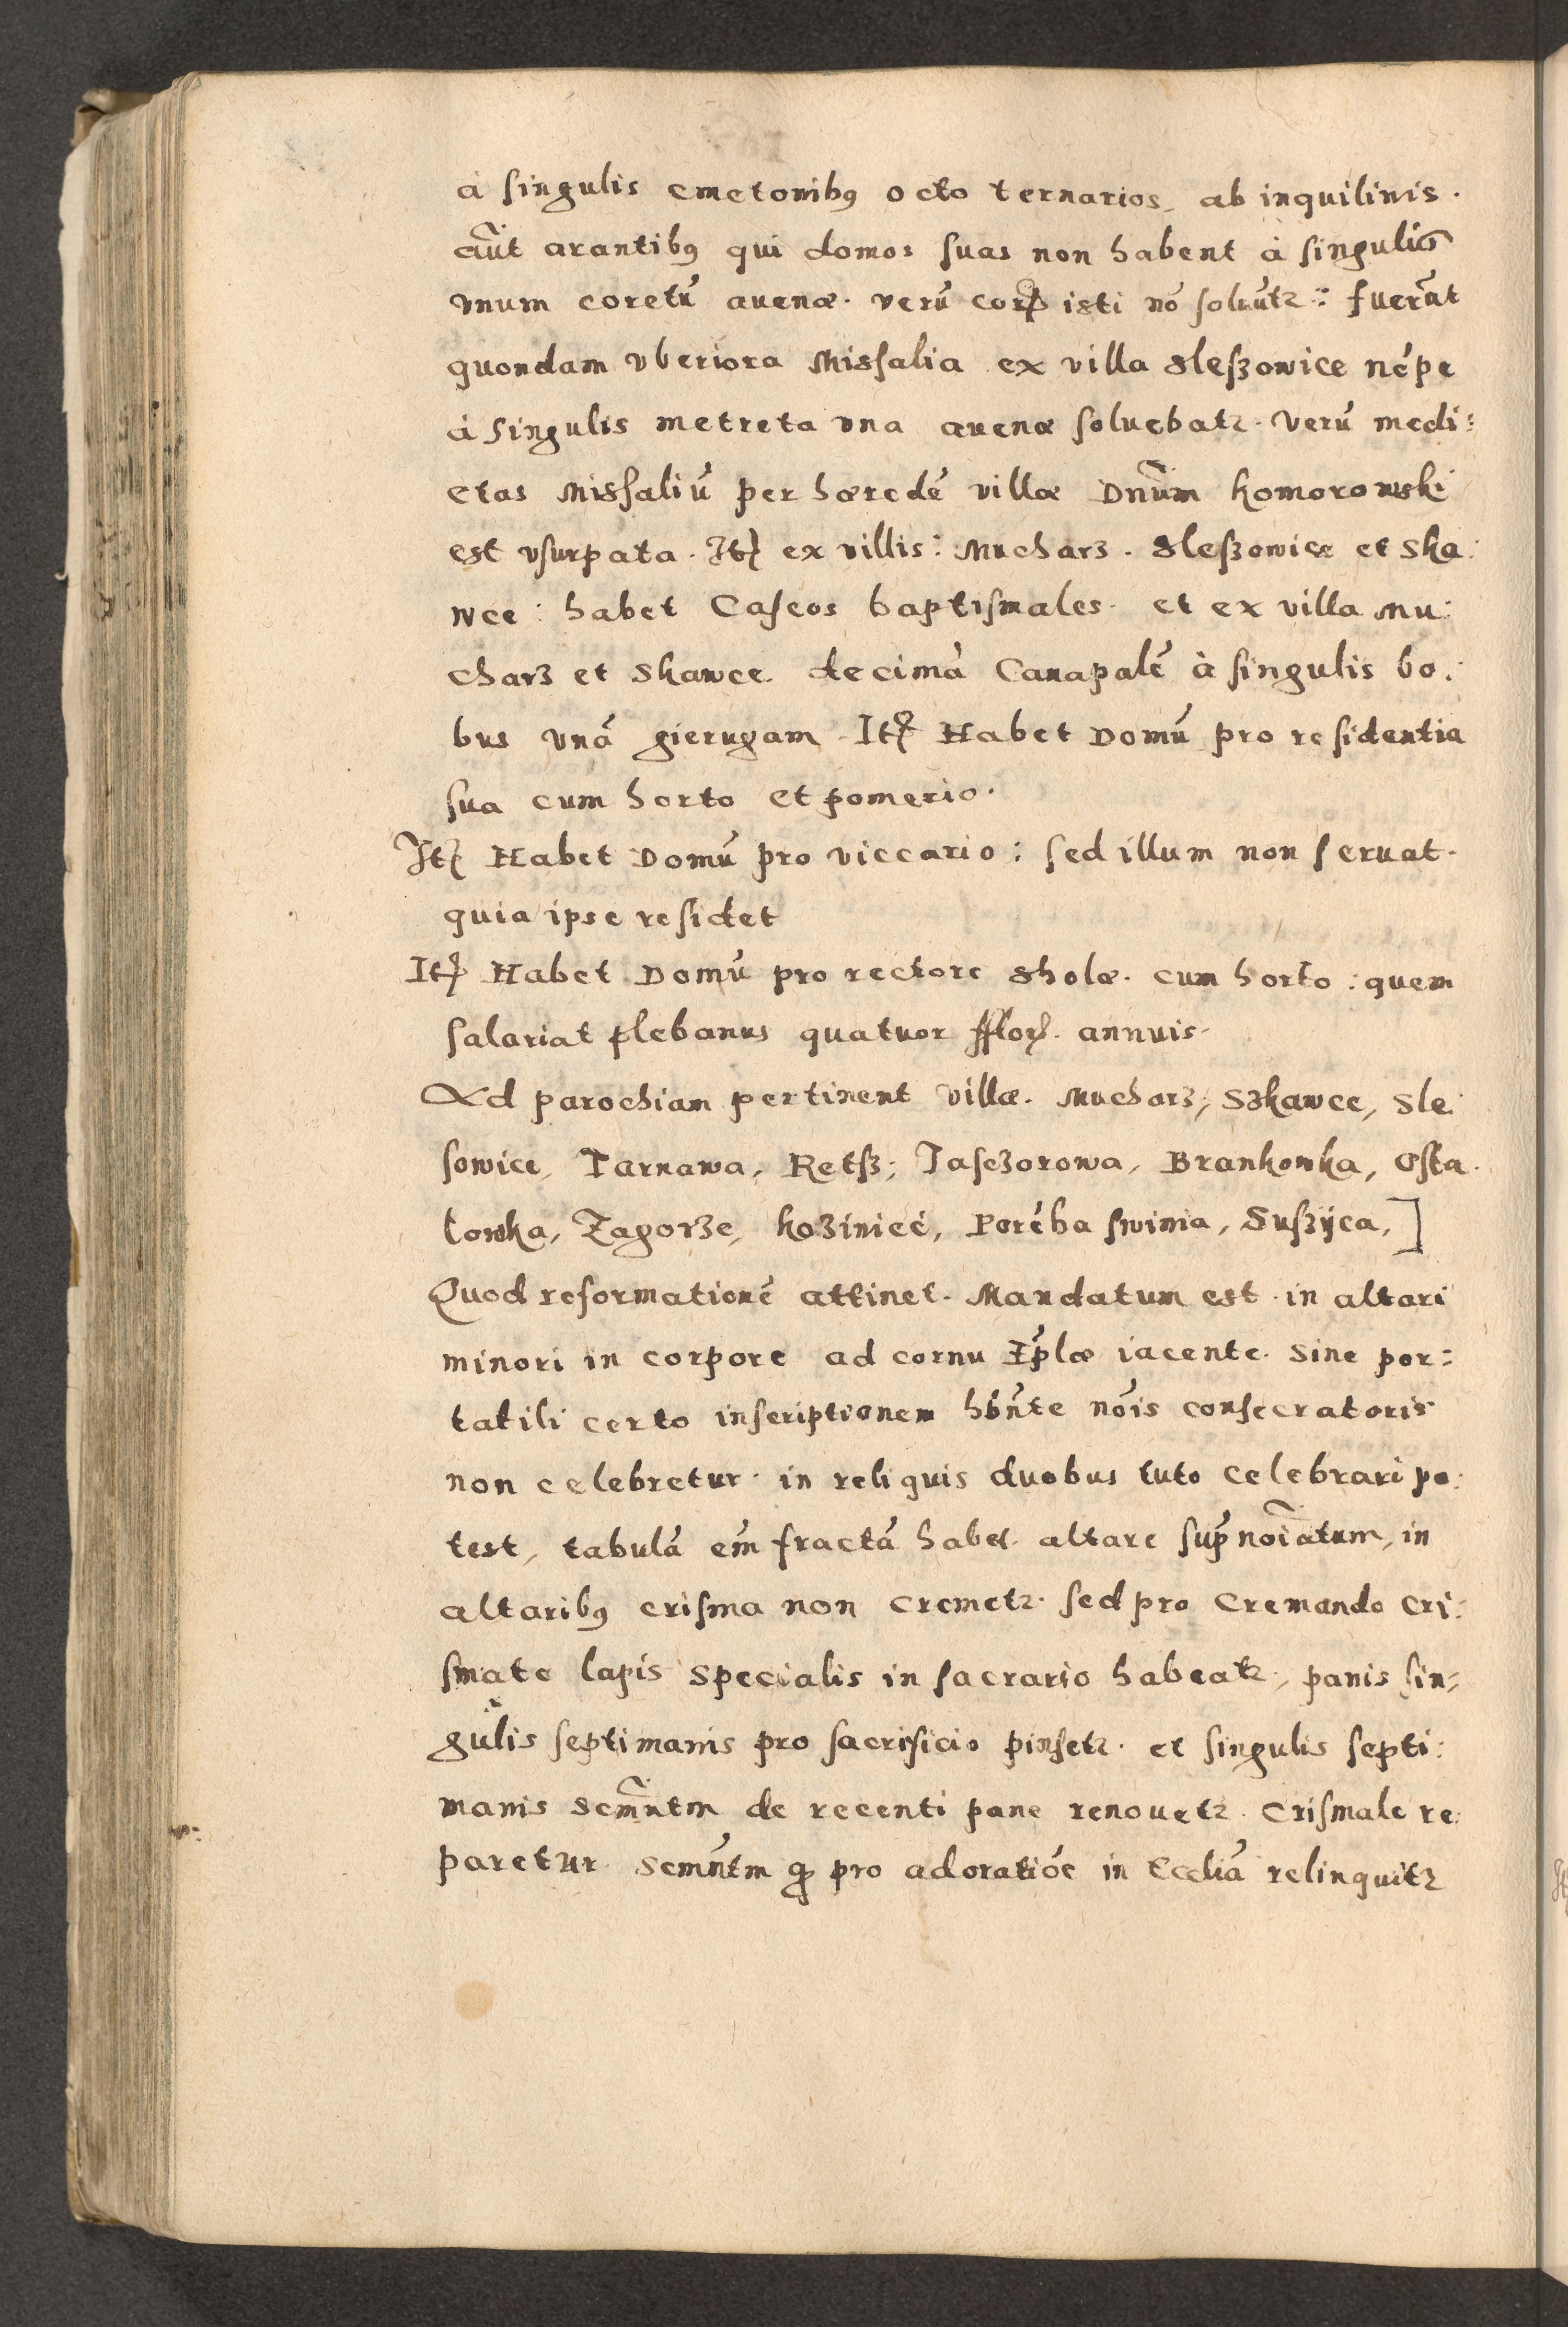 à singulis cmetonibꝰ octo ternarios, ab inquilinis.
aūt arantibꝰ qui domos suas non habent à singulis
vnum coretū auenæ. verū coꝝ isti nō soluūtꝛ: fuerāt
quondam vberiora Missalia ex villa Sleszowice nēpe
à singulis metreta vna auenæ soluebatꝛ. Verū medi:
etas Missaliū per hæredē villæ Dnūm Komorowski
est vsurpata. Itꝫ ex villis: Mucharz. Sleszowice et Ska:
wce: habet Caseos baptismales. et ex villa Mu:
charz et Skawce. decimā Canapalē à singulis bo:
bus vnā gierugam. Itꝫ Habet Domū pro residentia
sua cum horto et pomerio.
Itꝫ Habet Domū pro viccario: sed illum non seruat.
quia ipse residet
Itꝫ Habet Domū pro rectore sholæ. cum horto: quem
salariat plebanus quatuor fflorꝫ. annuis.
Ad parochiam pertinent villæ. Mucharz, Szkawce, Sle:
sowice, Tarnawa, Retsz, Jasczorowa, Brankowka, Osta:
lowka, Zagorze, Kozinieć, Poręba swinia, Suszÿca,]
Quod reformationē attinet. Mandatum est. in altari
minori in corpore ad cornu Ep̄læ iacente. sine por:
tatili certo inscriptionem hn̄te nōis consecratoris
non celebretur. in reliquis duobus tuto celebrari po:
test, tabulā em̄ fractā habet. altare sup̄noīatum, in
altaribꝰ crisma non cremetꝛ. sed pro Cremando Cri:
smate lapis specialis in sacrario habeatꝛ, panis sin:
gulis septimanis pro sacrificio pinsetꝛ. et singulis septi:
manis Scm̄ntm de recenti pane renouetꝛ. Crismale re:
paretur. Scm̄ntm ꝙ pro adoratiōe in Eccliā relinquitꝛ